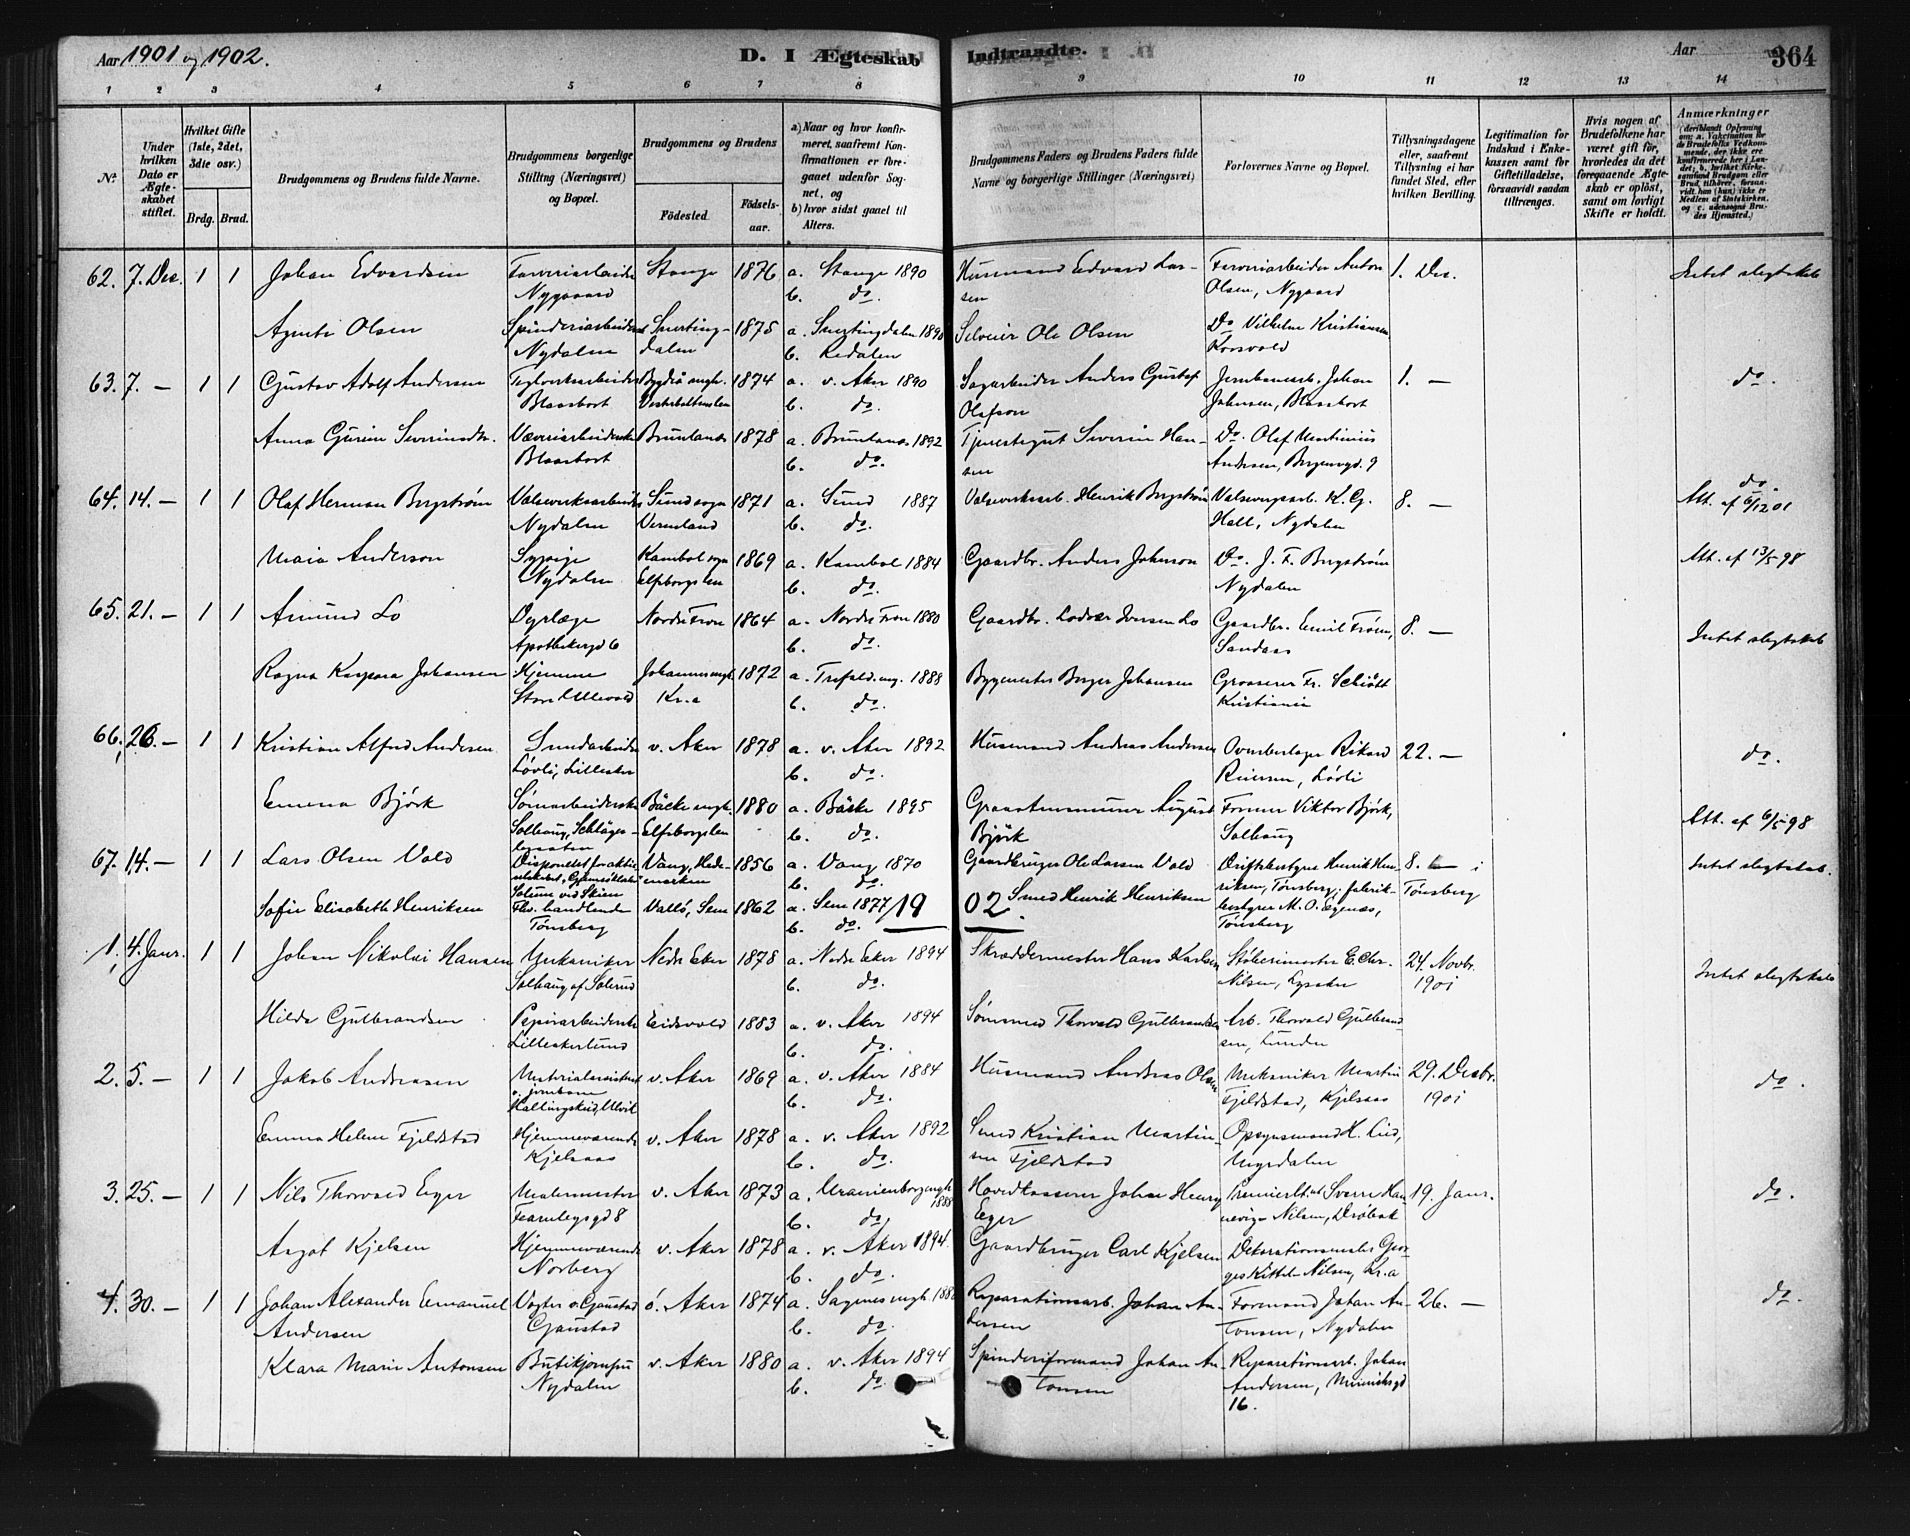 Aar 1901 og 1902.
D. I Ægteskab Indtraadte.
Aar 364
1 2 3 4 5 6 7 8 9 10 11 12 13 14
No.
Under hvilken Dato er Ægteskabet stiftet.
Hvilket Gifte (1ste, 2det, 3die osv.)
Brdg. Brud.
Brudgommens og Brudens fulde Navne.
Brudgommens borgerlige Stilling (Næringsvei) og Bopæl.
Brudgommens og Brudens
Fødested.
Fødselsaar.
a) Naar og hvor konfirmeret, saafremt Konfirmationen er foregaaet udenfor Sognet, og
b) hvor sidst gaaet til Alters.
Brudgommens Faders og Brudens Faders fulde Navne og borgerlige Stillinger (Næringsvei)
Forlovernes Navne og Bopæl.
Tillysningsdagene eller, saafremt Tillysning ei har fundet Sted, efter hvilken Bevilling.
Legitimation for Indskud i Enkekassen samt for Giftetilladelse, forsaavidt saadan tiltrænges.
Hvis nogen af Brudefolkene har været gift før, hvorledes da det foregaaende Ægteskab er opløst, samt om lovligt Skifte er holdt.
Anmærkninger
62. 7. Dec. 1 1 Johan Edvardsen Farveriarbeider Nygaard Stange 1876 a. Stange 1890 b. do. Husmand Edvard Larsen Farveriarbeider Anton Olsen, Nygaard 1. Dec. Intet slegtskab
Agnete Olsen Spinderiarbeiderske Nydalen Snertingdalen 1875 a. Snertingdalen 1890 b. Redalen Selveier Ole Olsen Do Vilhelm Kristiansen Korsvold
63. 7. — 1 1 Gustav Adolf Andersen Teglverksarbeider Blaasbort 1874 a. v. Aker 1890 b. do. Sagarbeider Anders Gustaf Olafson Jernbanearb. Johan Johnsen, Blaasbort 1. — do.
Anna Gurine Severinsdtr. Væveriarbeiderske Blaasbort Brunlanæs 1878 a. Brunlanæs 1892 b. do. Severin Hansen Do. Olaf Martinius Andersen, 9
64. 14. — 1 1 Olaf Herman Bergstrøm Valseverksarbeider Nydalen Sund sogn Vermland 1871 a. Sund 1887 b. do. Valseverksarb. Henrik Bergstrøm Valseverksarb. K. G. Hall, Nydalen 8. — do. Att. af 6/12 01
Maria Anderson Sypige Nydalen Elfsborgs len 1869 a. 1884 b. do. Gaardbr. Anders Johnson Do. J. F. Bergstrøm Nydalen Att. af 13/5 98
65. 21. — 1 1 Amund Lo Dyrlæge Apothekergd 6 Nordre Fron 1864 a. Nordre Fron 1880 b. do. Gaardbr. Iversen Lo Gaardbr. Emil Frøen, Sandaas 8. — Intet slegtskab
Ragna Kaspara Johansen Hjemme Store Ullevold Johannes mgh. Kr.a 1872 a. Trefold. mg. 1888 b. do. Bygmester Borger Johansen Grosserer Fr. Schiøtt Kristiania
66. 26. — 1 1 Kristian Alfred Andersen Løvli, Lilleaker v. Aker 1878 a. v. Aker 1892 b. do. Husmand Andreas Andersen Rikard Reiersen, Løvli 22. — do.
Emma Bjørk Sømarbeiderske Solhaug, Bäcke mgh. Elfsborgs len 1880 a. Bäcke 1895 b. do. August Björk Former Viktor Bjørk, Solhaug Att. af 6/5 98
67. 14. — 1 1 Lars Olsen Vold Vang, Hedemarken 1856 a. Vang 1870 b. do. Gaardbruger Ole Larsen Vold Driftsbestyrer Henrik Henriksen, Tønsberg; fabrikbestyrer M. O. Egenæs, Tønsberg 8. — i Tønsberg Intet slegtskab.
Sofie Elisabeth Henriksen Fhv. handlende Tønsberg Vallø, Sem 1862 a. Sem 1877 b. do. Smed Henrik Henriksen
1902.
1. 4. Janr. 1 1 Johan Nikolai Hansen Mekaniker Solhaug af Sollerud Nedre Eker 1878 a. Nedre Eker 1894 b. do. Skræddermester Hans Karlsen Støberimester E. Chr. Nilsen, Lysaker 24. Novbr. 1901 Intet slegtskab
Hilda Gulbrandsen Papirarbeiderske Lilleakerlund Eidsvold 1883 a. v. Aker 1894 b. do. Thorvald Gulbrandsen Arb. Thorvald Gulbrandsen, Lunden
2. 5. — 1 1 Jakob Andreasen Hallingskeid, Ulvik v. Aker 1869 a. v. Aker 1884 b. do. Husmand Andreas Olsen Mekaniker Martin Fjeldstad, Kjelsaas 29. Decbr. 1901 do.
Emma Helene Fjeldstad Hjemmeværende Kjelsaas v. Aker 1878 a. v. Aker 1892 b. do. Smed Kristian Martinsen Fjeldstad Opsynsmand H. Lied, Mysdalen
3. 25. — 1 1 Nils Thorvald Eger Malermester Fearnleysgd 8 v. Aker 1873 a. Uranienborg mgh. 1888 b. do. Hovedkasserer Johan Henry Eger Premierlt.nt Sverre Hannevig Nilsen, Drøbak 19. Janr. do.
Aagot Kjelsen Hjemmeværende Norberg v. Aker 1878 a. v. Aker 1894. b. do. Gaardbruger Carl Kjelsen Dekorationsmaler Georges Kittel Nilsen, Kr.a
4. 30. — 1 1 Johan Alexander Emanuel Andersen Vogter v. Gaustad Gaustad ö. Aker 1874 a. Sagenes mgh. b. do. Reparationsarb. Johan Andersen Formand Johan Antonsen, Nydalen 26. — do.
Klara Marie Antonsen Butikjomfru Nydalen v. Aker 1880 a. v. Aker 1894 b. do. Spinderiformand Johan Antonsen Reparationsarb. Johan Andersen, 16.